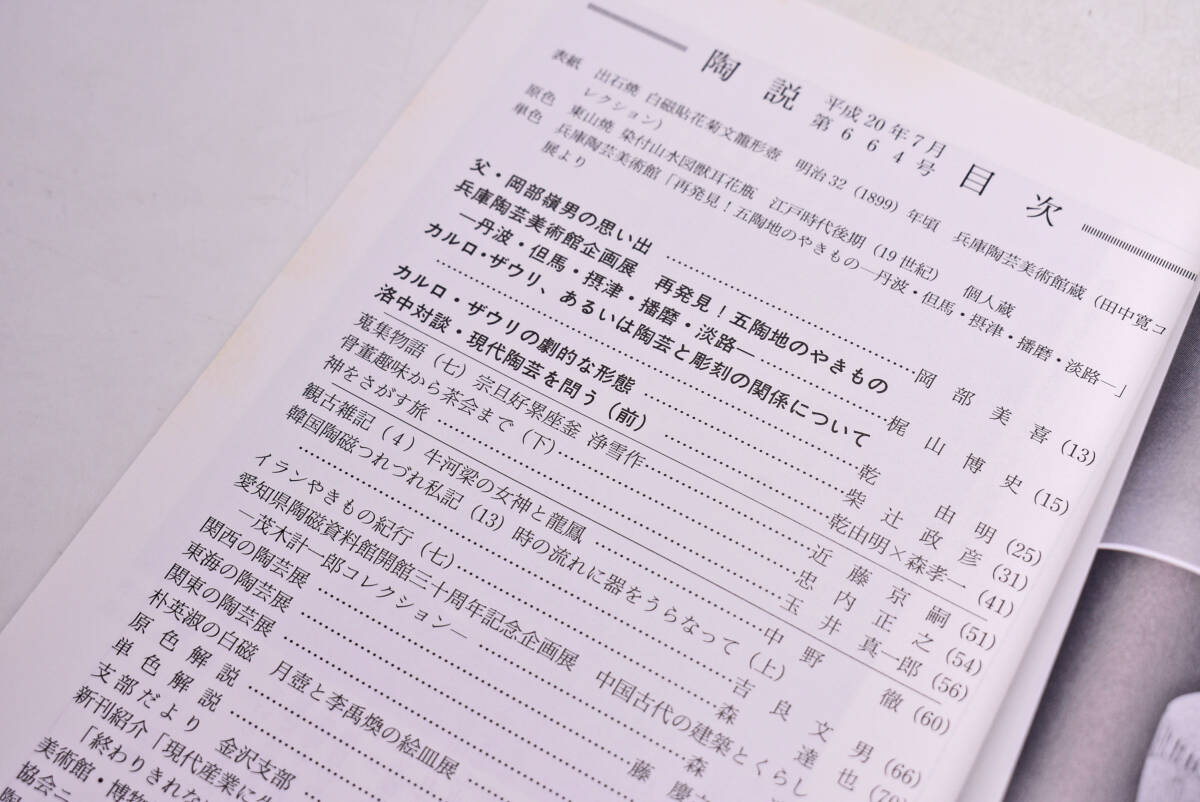 陶説 平成20年7月 第664号 目次
表紙 出石焼 白磁貼花菊文龍形壺 明治32（1899）年頃 兵庫陶芸美術館蔵（田中寛コ
レクション）
原色 東山焼 染付山水図獣耳花瓶 江戸時代後期（19世紀） 個人蔵
単色 兵庫陶芸美術館「再発見！五陶地のやきもの―丹波・但馬・摂津・播磨・淡路―」
展より
父・岡部嶺男の思い出 岡部美喜 (13)
兵庫陶芸美術館企画展 再発見！五陶地のやきもの
―丹波・但馬・摂津・播磨・淡路― 梶山博史 (15)
カルロ・ザウリ、あるいは陶芸と彫刻の関係について
乾由明 (25)
カルロ・ザウリの劇的な形態 柴辻政彦 (31)
洛中対談・現代陶芸を問う（前） 乾由明×森孝一 (41)
蒐集物語（七）宗旦好累座釜 浄雪作 近藤京嗣 (51)
骨董趣味から茶会まで（下） 忠内正之 (54)
神をさがす旅 玉井真一郎 (56)
観古雑記（4）牛河梁の女神と龍鳳 中野徹 (60)
韓国陶磁つれづれ私記（13）時の流れに器をうらなって（上）
吉良文男 (66)
イランやきもの紀行（七） 森達也 (70)
愛知県陶磁資料館開館三十周年記念企画展 中国古代の建築とくらし
―茂木計一郎コレクション― 森
関西の陶芸展 藤慶之
東海の陶芸展
関東の陶芸展
朴英淑の白磁 月壺と李禹煥の絵皿展
原色解説
単色解説
支部だより 金沢支部
新刊紹介「現代産業に生
「終わりきれな
美術館・博物
協会ニ
陶